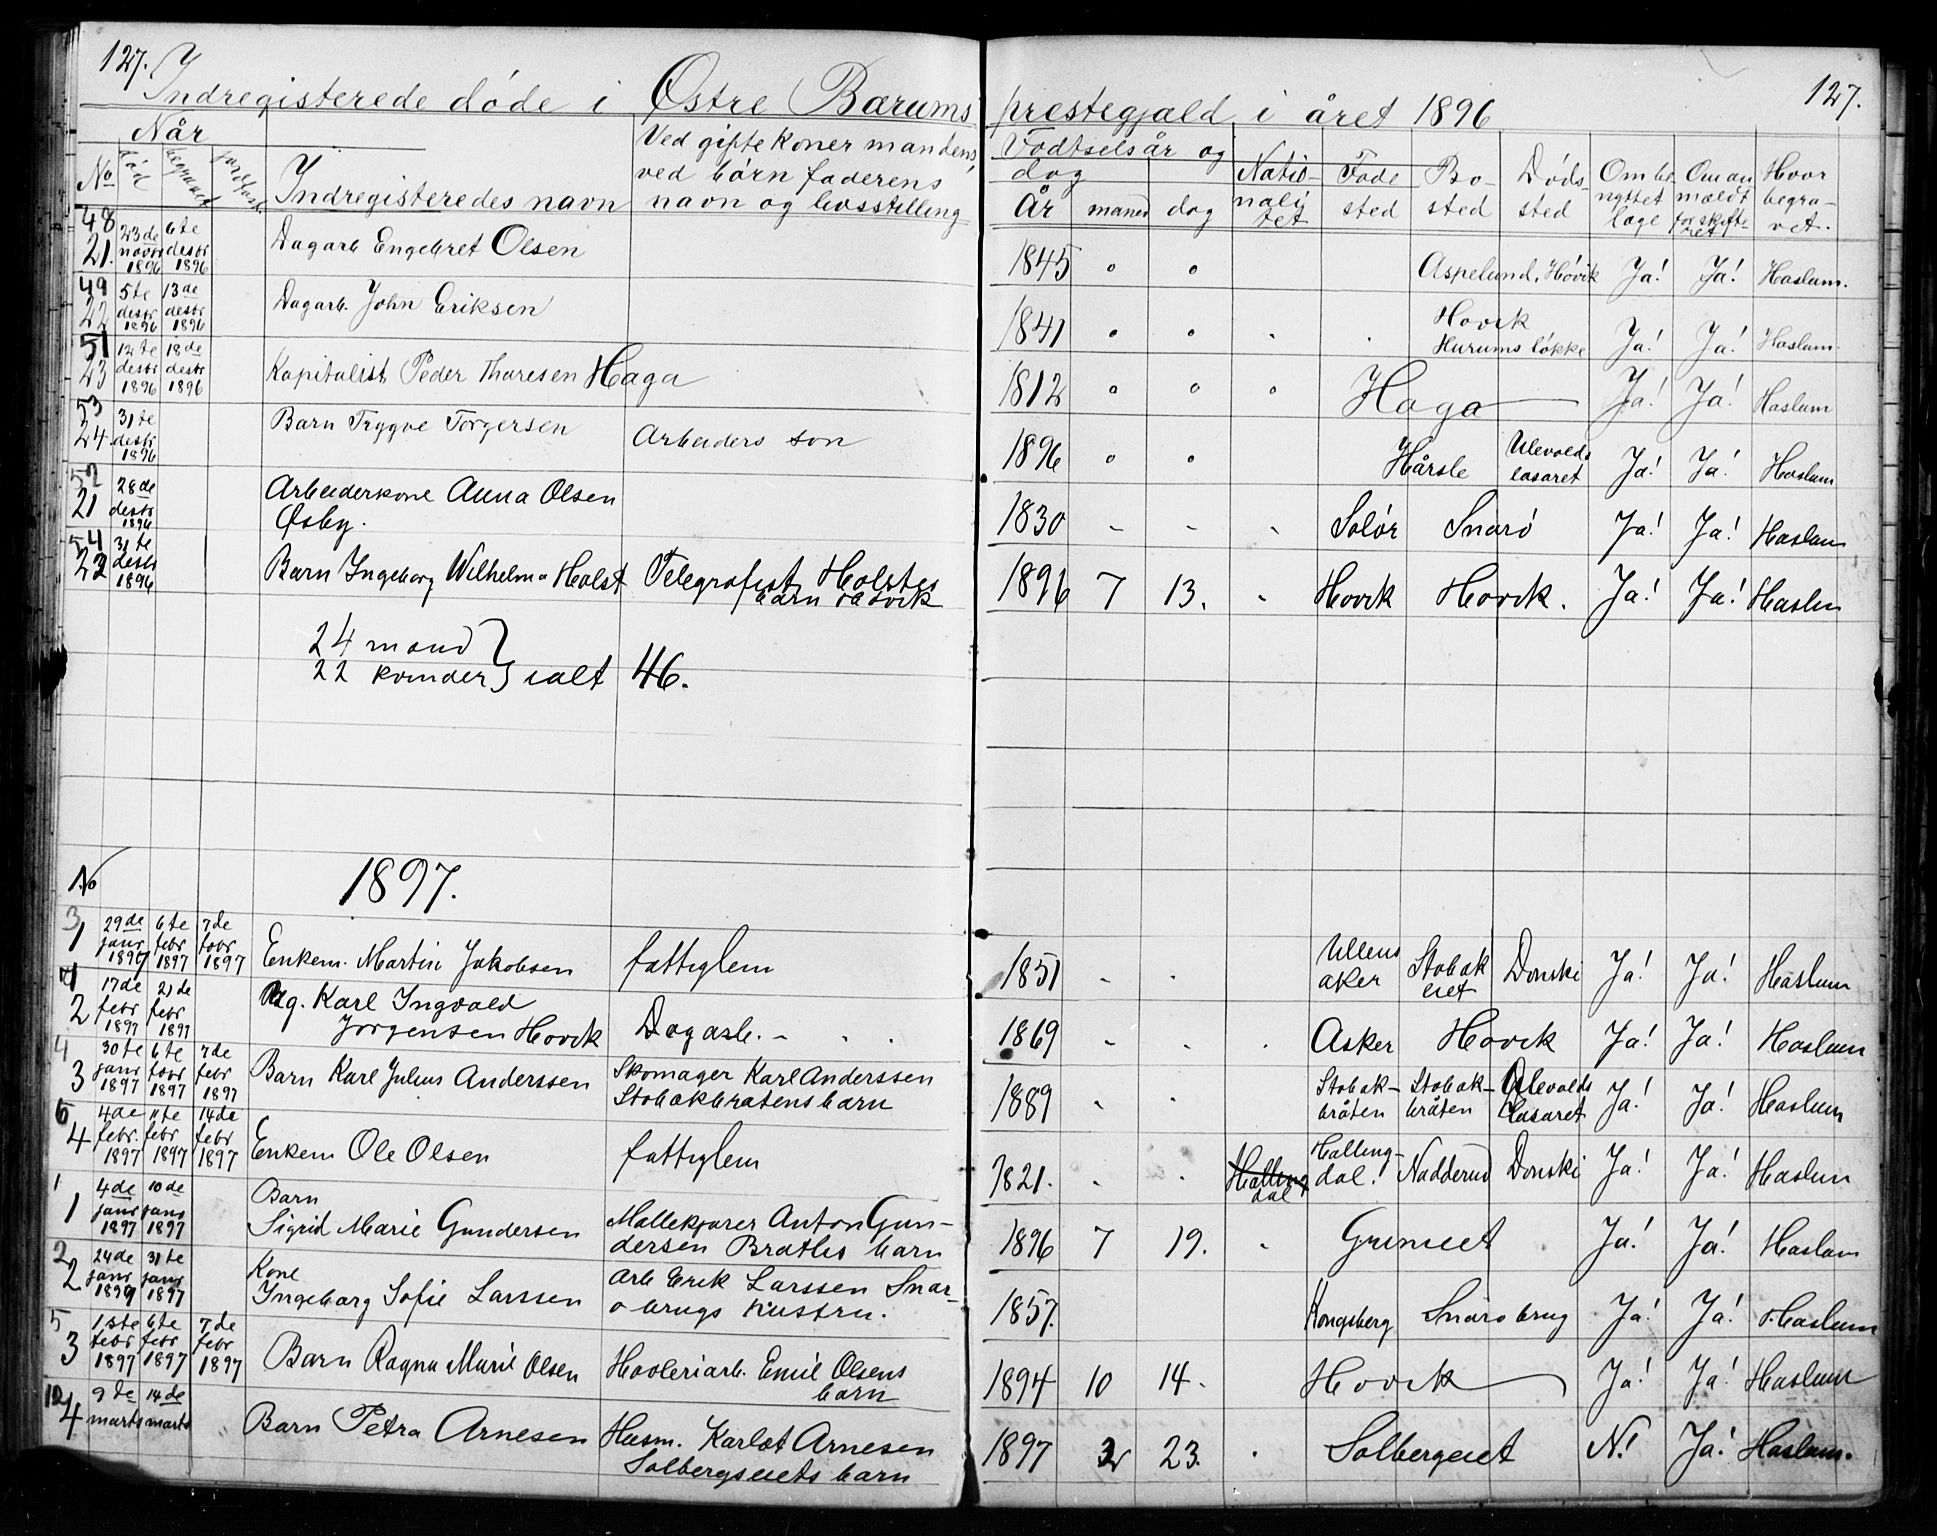 127. 127.
Indregisterede døde i Østre Bærums prestegjæld i året 1896
Når
No død begravet jordfæstet
Indregisteredes navn
Ved gifte koner mandens,
ved børn faderens
navn og livsstilling
Fødtselsår og
dag
År måned dag
Natio-
nali
tet
Føde
sted
Bo-
sted
Døds-
sted
Om be
nyttet
læge
Om an
mældt
for skifte-
ret
Hvor
begra-
vet.
48 21. 23de novbr 1896 6te desbr 1896 Dagarb Engebret Olsen 1845 " " Aspelund, Høvik Ja! Ja! Haslum.
49 22 5te desbr 1896 13de desbr 1896 Dagarb. John Eriksen 1841 " " " " Høvik
Hurums løkke Ja! Ja! Haslum.
51 23 12te desbr 1896 18de desbr 1896 Kapitalist Peder Thoresen Haga 1812 " " " Haga Ja! Ja! Haslum
53 24 31te desbr 1896 Barn Trygve Torgersen Arbeiders søn 1896 " " Hårsle Ulevolds
lasaret Ja! Ja! Haslum
52 21 28de desbr 1896 Arbeiderkone Anna Olsen
Øsby. 1830 " " " Solør Snarø Ja! Ja! Haslum
54 22 31te desbr 1896 Barn Ingeborg Wilhelma Holst Telegrafist Holstes
barn Høvik 1896 7 13. " Høvik Høvik. Ja! Ja! Haslum
24 mænd
22 kvinder } ialt 46.
No 1897.
3 1 29de janr 1897 6te febr 1897 7de febr 1897 Enkem. Martin Jakobsen fattiglem 1851 " " Ullens
aker Stobak
eiet Donski Ja! Ja! Haslum
7 2 17de febr 1897 21de febr 1897 Ug. Karl Ingvald
Jørgensen Høvik Dagarb. " " " 1869 " " " Asker Høvik Ja! Ja! Haslum
4 3 30te janr 1897 6te febr 1897 7de febr 1897 Barn Karl Julius Anderssen Skomager Karl Anderssen
Stobakbråtens barn 1889 " " Stobak-
bråten Stobak-
bråten Ulevolds
lasaret Ja! Ja! Haslum
6 4 4de febr. 1897 11te febr 1897 14de febr 1897 Enkem Ole Olsen fattiglem 1821. " " Halling
dal Halling-
dal. Nadderud Donski Ja! Ja! Haslum
1 1 4de janr 1897 10de janr 1897 Barn
Sigrid Marie Gundersen Mælkekjører Anton Gun-
dersen Bratlis barn 1896 7 19. " Grinieet Ja! Ja! Haslum
2 2 24de janr 1897 31te janr 1897 Kone
Ingeborg Sofie Larssen Arb Erik Larssen Snar-
øbrugs hustru. 1857. Kongsberg Snarøbrug Ja! Ja! Haslum
5 3 1ste febr 1897 6te febr 1897 7de febr 1897 Barn Ragna Marie Olsen Høvleriarb. Emil Olsens
barn 1894 10 14. Høvik Ja! Ja! Haslum
12 4 9de marts 14de marts Barn Petra Arnesen Husm. Karlot Arnesen
Solbergseiets barn 1897 2 23. " Solbergeiet N! Ja! Haslum.